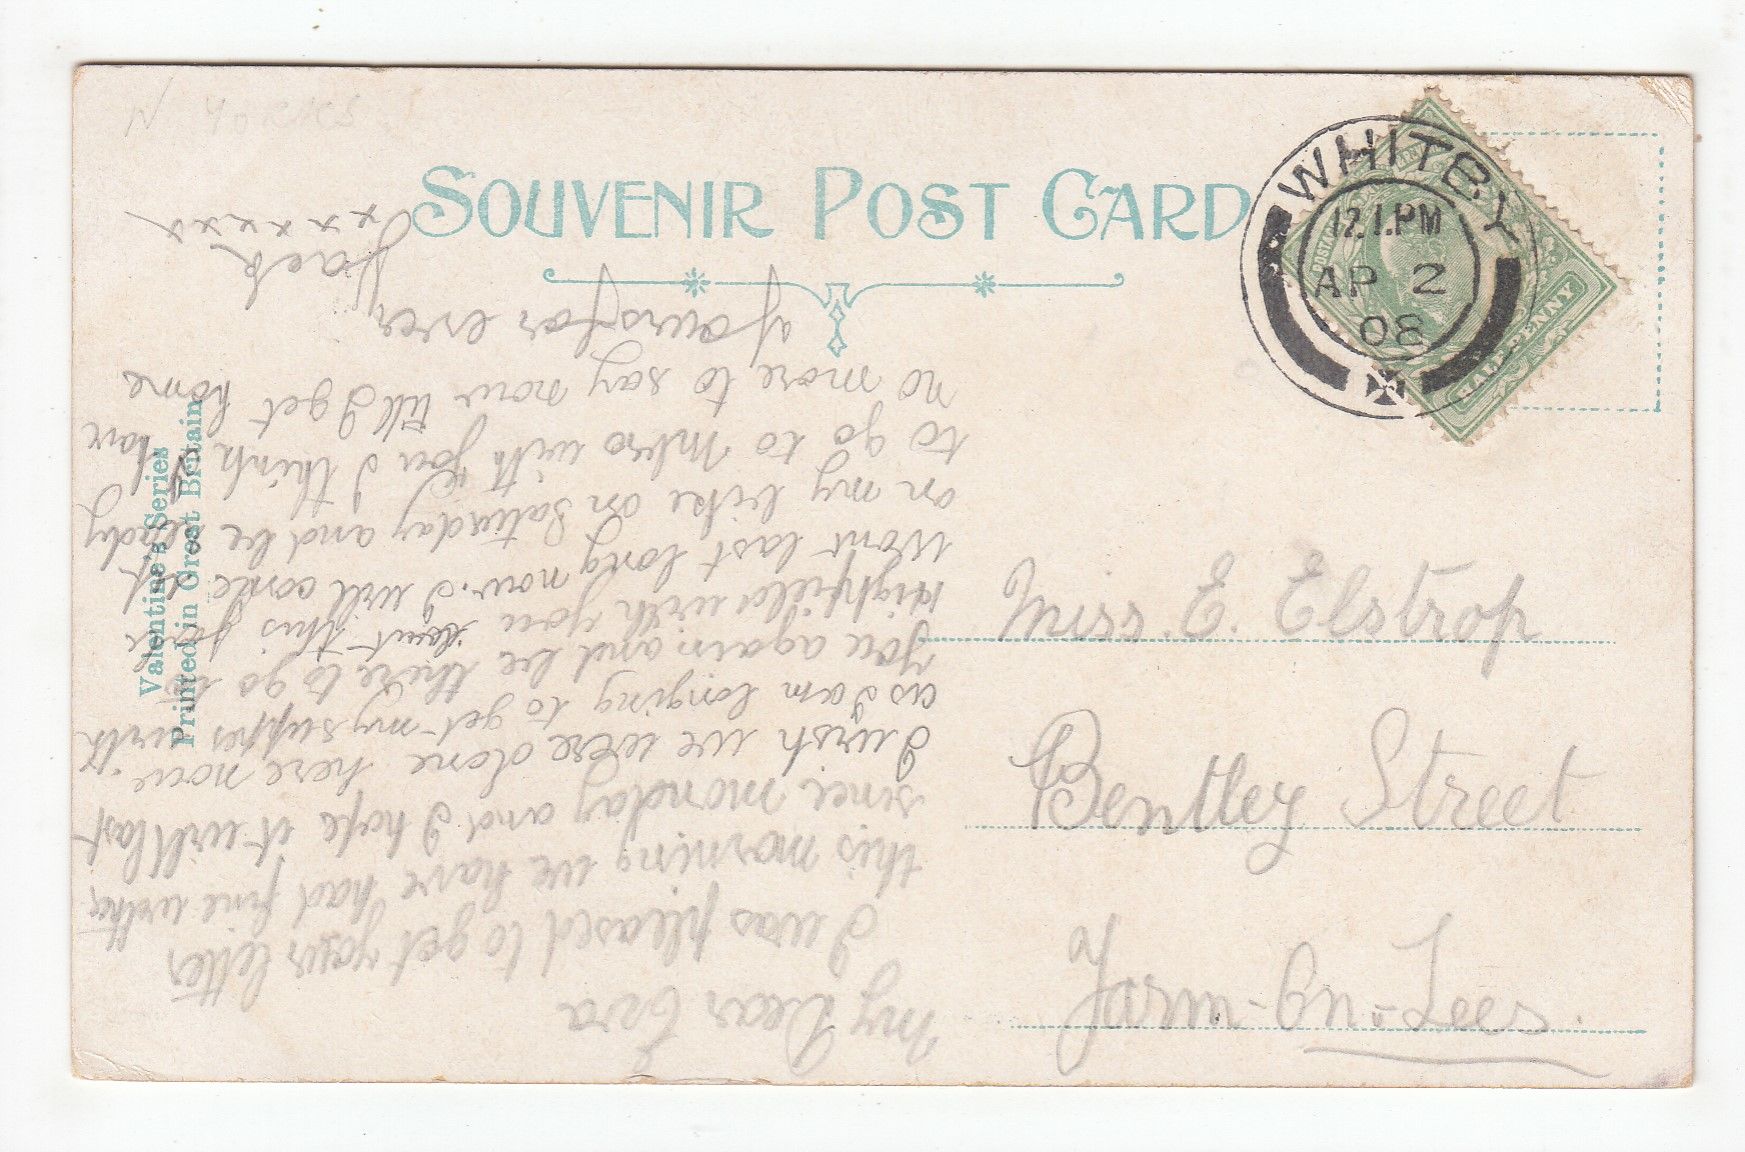 N YORKS
SOUVENIR POST CARD
WHITBY
12.1.PM
AP 2
08
HALFPENNY
Valentine's Series
Printed in Great Britain
Miss. E. Elstrop
Bentley Street
Yarm-On-Tees.
My Dear Eva
I was pleased to get your letter
this morning we have had fine wether
since monday and I hope it will last
I wish we were done here now.
as I am longing to get my supper with
you again and be there to go to
Highfields with you but this job
wont last long now. I will come
on my bike on Saturday and be ready
to go to Mbro with you I think I have
no more to say now till I get home
yours for ever
Jack
xxxxxx